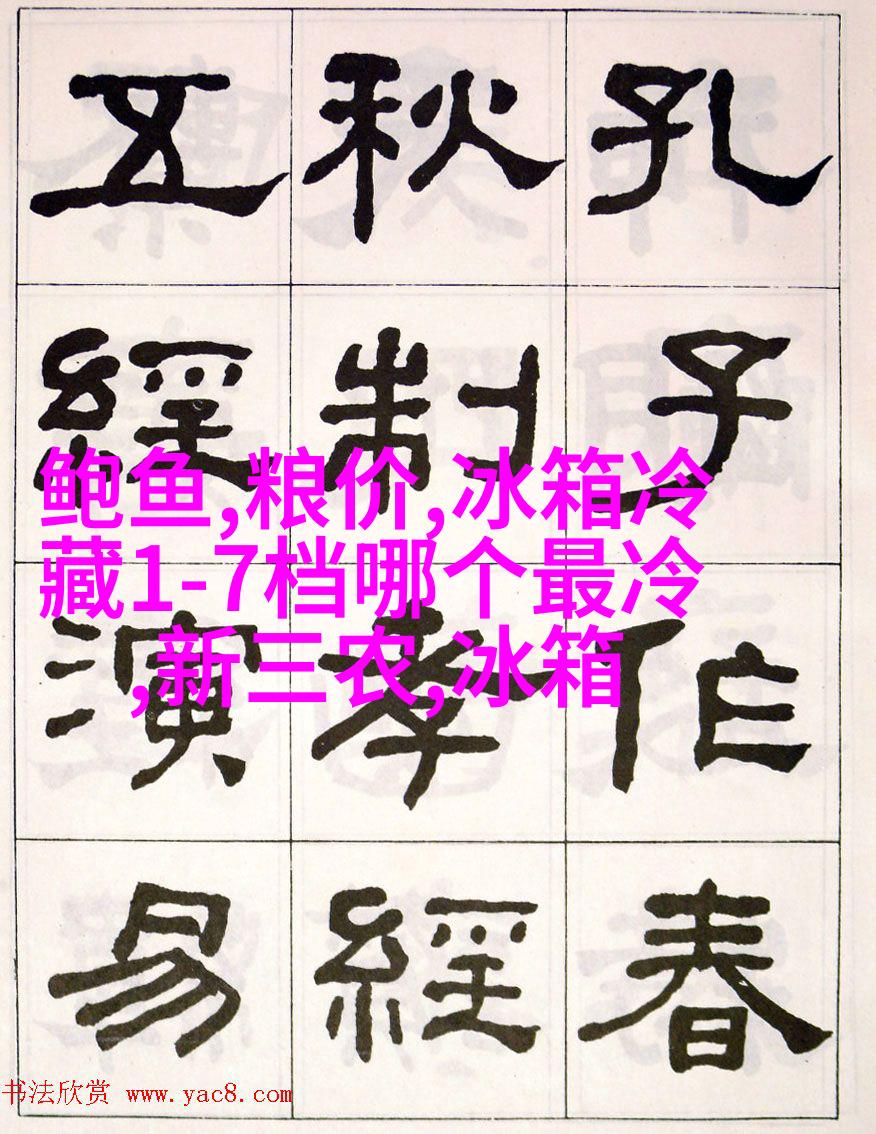 孔子作春
秋制孝經
五經演易
鲍鱼,粮价,冰箱冷
藏1-7档哪个最冷
,新三农,冰箱
书法欣赏 www.yac8.com